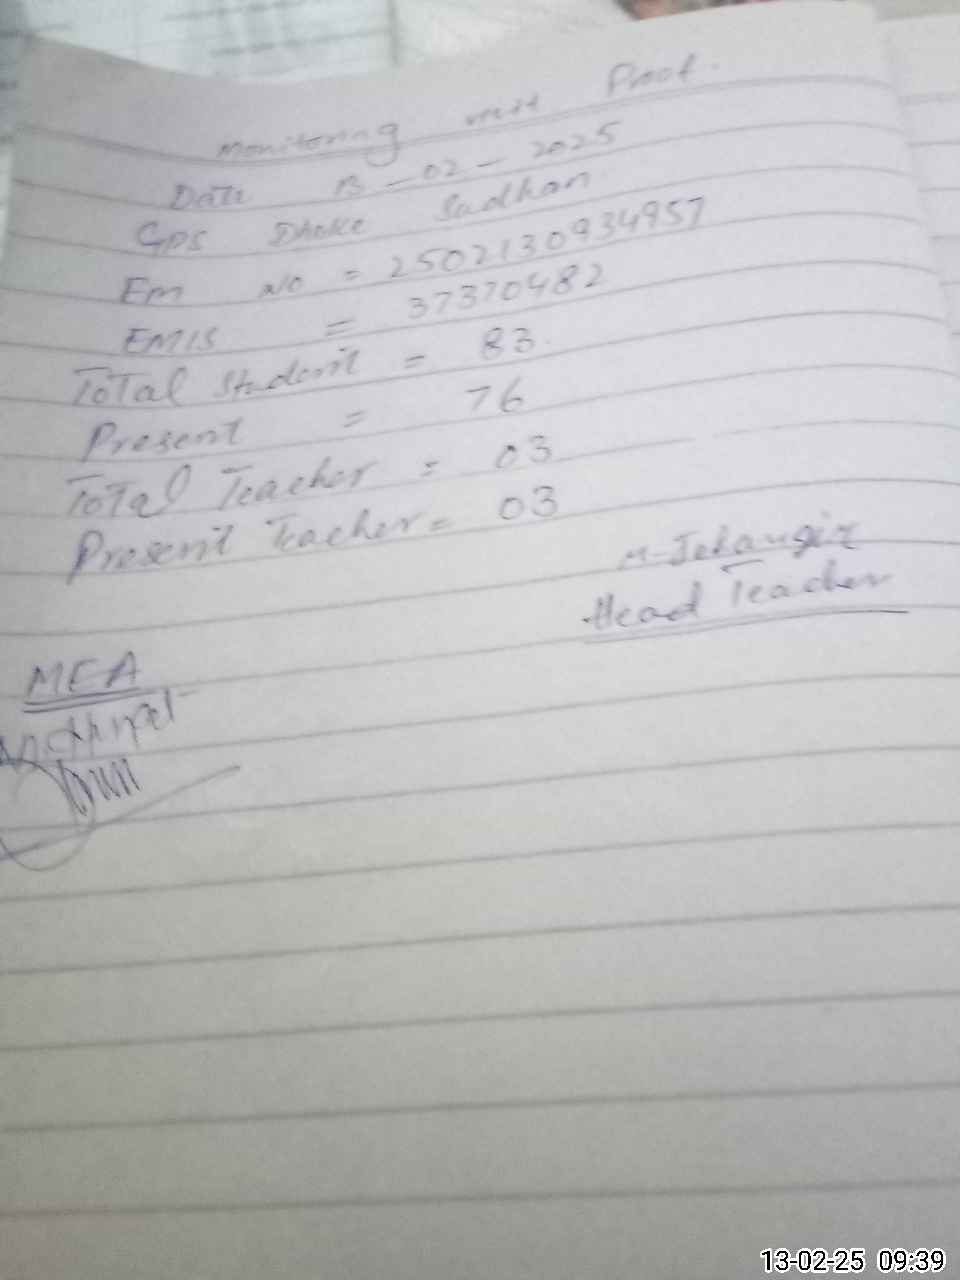 Monitoring visit Proof.
Date 13-02-2025
GPS Dhoke Sadhan
Em No = 2502130934957
EMIS = 37370482
ToTal Student = 83.
Present = 76
ToTal Teacher = 03
Present Teacher = 03
M-Jehangir
Head Teacher
MEA
13-02-25 09:39